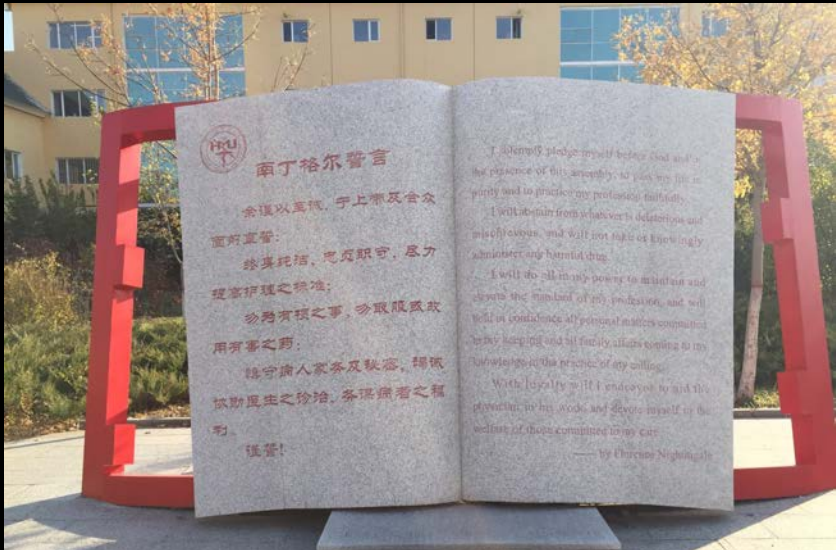 HMU
南丁格尔誓言
余谨以至诚，于上帝及会众
面前宣誓：
终身纯洁，忠贞职守，尽力
提高护理之标准；
勿为有损之事，勿取服或故
用有害之药；
谨守病人家务及秘密，竭诚
协助医生之诊治，务谋病者之福
利。
谨誓！
I solemnly pledge myself before God and in
the presence of this assembly, to pass my life in
purity and to practice my profession faithfully.
I will abstain from whatever is deleterious and
mischievous, and will not take or knowingly
administer any harmful drug.
I will do all in my power to maintain and
elevate the standard of my profession, and will
hold in confidence all personal matters committed
to my keeping and all family affairs coming to my
knowledge in the practice of my calling.
With loyalty will I endeavor to aid the
physician, in his work, and devote myself to the
welfare of those committed to my care.
—— by Florence Nightingale